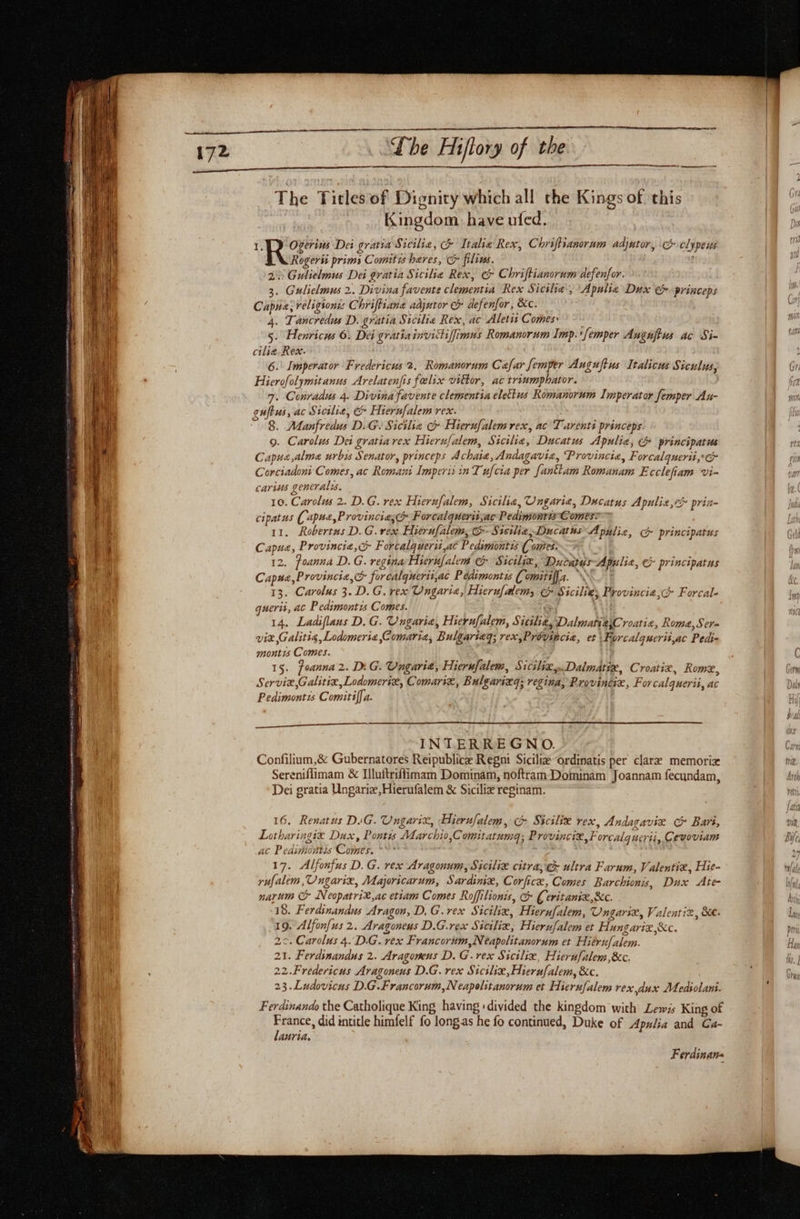 172 The Hiſtory of the
The Titles of Dignity which all the Kings of this
Kingdom have uſed.
1. ROgerius Dei gratia Sicilie, & Italie Rex, Chriſtianorum adjutor, & clypeus
Rogerii primi Comitis heres, & filius.
2. Gulielmus Dei gratia Sicilie Rex, & Chriſtianorum defenſor.
3. Gulielmus 2. Divina favente clementia Rex Sicilie, Apulie Dux & princeps
Capuæ, religionis Chriſtiane adjutor & defenſor, &c.
4. Tancredus D. gratia Sicilie Rex, ac Aletii Comes.
5. Henricus 6. Dei gratia invictiſſimus Romanorum Imp. ſemper Auguſtus ac Si-
cilie Rex.
6. Imperator Fredericus 2. Romanorum Cæſar ſemper Auguſtus Italicus Siculus,
Hieroſolymitanus Arelatenſis fælix victor, ac triumphator.
7. Conradus 4. Divina favente clementia electus Romanorum Imperator ſemper Au-
guſtus, ac Sicilie, & Hieruſalem rex.
8. Manfredus D.G. Sicilie & Hieruſalem rex, ac Tarenti princeps.
9. Carolus Dei gratia rex Hieruſalem, Sicilie, Ducatus Apulie, & principatus
Capuæ, alme urbis Senator, princeps Achaie, Andagavie, Provincie, Forcalquerii, &
Corciadoni Comes, ac Romani Imperii in Tuſcia per ſanctam Romanam Eccleſiam vi-
carius generalis.
10. Carolus 2. D. G. rex Hieruſalem, Sicilie, Ungarie, Ducatus Apulie, & prin-
cipatus Capuæ, Provincie, & Forcalquerii, ac Pedimontis Comes.
11. Robertus D. G. rex Hieruſalem, & Sicilie, Ducatus Apulie, & principatus
Capuæ, Provincie, & Forcalquerii, ac Pedimontis Comes.
12. Joanna D. G. regina Hieruſalem & Sicilie, Ducatus Apulie, & principatus
Capuæ, Provincie, & forcalquerii, ac Pedimontis Comitiſſa.
13. Carolus 3. D. G. rex Ungarie, Hieruſalem, & Sicilie, Provincie, & Forcal-
querii, ac Pedimontis Comes.
14. Ladiſlaus D. G. Ungarie, Hieruſalem, Sicilie, Dalmatie, Croatie, Rome, Ser-
vie, Galitie, Lodomerie, Comarie, Bulgarieq; rex, Provincie, et Forcalquerii, ac Pedi-
montis Comes.
15. Joanna 2. D. G. Ungarie, Hieruſalem, Siciliæ, Dalmatiæ, Croatiæ, Romæ,
Serviæ, Galitiæ, Lodomeriæ, Comariæ, Bulgariæq; regina, Provinciæ, Forcalquerii, ac
Pedimontis Comitiſſa.
INTERREGNO.
Conſilium, & Gubernatores Reipublicæ Regni Siciliæ ordinatis per claræ memoriæ
Sereniſſimam & Illuſtriſſimam Dominam, noſtram Dominam Joannam ſecundam,
Dei gratia Ungariæ, Hieruſalem & Siciliæ reginam.
16. Renatus D.G. Ungariæ, Hieruſalem, & Siciliæ rex, Andagaviæ & Bari,
Lotharingiæ Dux, Pontis Marchio, Comitatumq; Provinciæ, Forcalquerii, Cevoviam
ac Pedimontis Comes.
17. Alfonſus D. G. rex Aragonum, Siciliæ citra, & ultra Farum, Valentiæ, Hie-
ruſalem, Ungariæ, Majoricarum, Sardiniæ, Corſicæ, Comes Barchionis, Dux Ate-
narum & Neopatriæ, ac etiam Comes Roſſilionis, & Ceritaniæ, &c.
18. Ferdinandus Aragon, D. G. rex Siciliæ, Hieruſalem, Ungariæ, Valentiæ, &c.
19. Alfonſus 2. Aragoneus D.G. rex Siciliæ, Hieruſalem et Hungariæ, &c.
20. Carolus 4. D.G. rex Francorum, Neapolitanorum et Hieruſalem.
21. Ferdinandus 2. Aragoneus D. G. rex Siciliæ, Hieruſalem, &c.
22. Fredericus Aragoneus D.G. rex Siciliæ, Hieruſalem, &c.
23. Ludovicus D.G. Francorum, Neapolitanorum et Hieruſalem rex, dux Mediolani.
Ferdinando the Catholique King having divided the kingdom with Lewis King of
France, did intitle himſelf ſo long as he ſo continued, Duke of Apulia and Ca-
lauria.
Ferdinan-